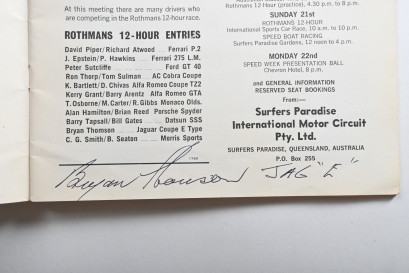 At this meeting there are many drivers who
are competing in the Rothmans 12-hour race.
ROTHMANS 12-HOUR ENTRIES
David Piper/Richard Atwood ... Ferrari P.2
J. Epstein/P. Hawkins ... Ferrari 275 L.M.
Peter Sutcliffe ... Ford GT 40
Ron Thorp/Tom Sulman ... AC Cobra Coupe
K. Bartlett/D. Chivas Alfa Romeo Coupe TZ2
Kerry Grant/Barry Arentz Alfa Romeo GTA
T. Osborne/M. Carter/R. Gibbs Monaco Olds.
Alan Hamilton/Brian Reed Porsche Spyder
Barry Tapsall/Bill Gates ... Datsun SSS
Bryan Thomson ... Jaguar Coupe E Type
C. G. Smith/B. Seaton ... Morris Sports
Rothmans 12 Hour (practice), 4.30 p.m. to 8 p.m.
SUNDAY 21st
ROTHMANS 12-HOUR
International Sports Car Race, 10 a.m. to 10 p.m.
SPEED BOAT RACING
Surfers Paradise Gardens, 12 noon to 4 p.m.
MONDAY 22nd
SPEED WEEK PRESENTATION BALL
Chevron Hotel, 8 p.m.
and GENERAL INFORMATION
RESERVED SEAT BOOKINGS
From:—
Surfers Paradise
International Motor Circuit
Pty. Ltd.
SURFERS PARADISE, QUEENSLAND, AUSTRALIA
P.O. Box 255
Bryan Thomson JAG "E"